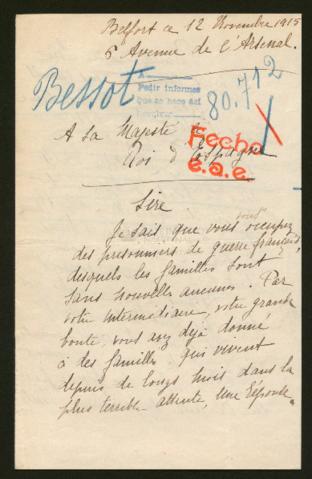 Belfort ce 12 Novembre 1915
6 Avenue de l'Arsenal.
Bessot
Pedir informes
que se hace así
80.712
A Sa Majesté le
Roi d'Espagne
Fecho
e.a.e.
Sire
Je sais que vous vous occupez
des prisonniers de guerre français,
desquels les familles sont
sans nouvelles aucunes. Par
votre intermédiaire, votre grande
bonté, vous avez déjà donné
à des familles qui vivent
depuis de longs mois dans la
plus terrible attente, une Réponse.